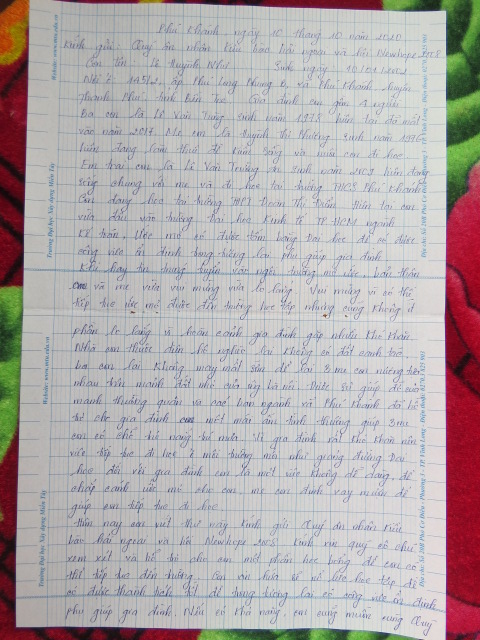 Phú Khánh, ngày 10 tháng 10 năm 2020
Kính gửi: Quý ân nhân kiều bào hải ngoại và hội Newhope 2008
Con tên: Lê Huỳnh Như Sinh ngày: 10/01/2002
Nhà ở: 145/2, ấp Phú Long Phụng B, xã Phú Khánh huyện
Thạnh Phú tỉnh Bến Tre. Gia đình em gồm 4 người
Ba em là Lê Văn sinh năm 1973 hiện tại đã mất
vào năm 2017. Mẹ em là Huỳnh Thị Phường sinh năm
hiện đang làm thuê để kiếm sống và nuôi con đi học.
Em trai em là Lê Văn sinh năm 2009 hiện đang
sống chung với mẹ và đi học tại trường THCS Phú Khánh
Em đang học tại trường THPT Đoàn Thị Điểm. Hiện tại em
vừa đậu vào trường Đại học Kinh tế TP.HCM ngành
kế toán. Ước mơ có được tấm bằng Đại học để có được
công việc ổn định trong tương lai phụ giúp gia đình.
Khi hay tin trúng tuyển vào ngôi trường mơ ước, bản thân
em và mẹ vừa vui mừng vừa lo lắng. Vui mừng vì có thể
tiếp tục ước mơ được đến trường học tập nhưng cũng không ít
phần lo lắng vì hoàn cảnh gia đình gặp nhiều khó khăn.
Nhà em thuộc diện hộ nghèo lại không có đất canh tác,
ba em lại không may mất sớm để lại 3 mẹ con nương tựa
nhau trên mảnh đất nhỏ của ông bà nội. Được sự giúp đỡ của
mạnh thường quân và các ban ngành xã Phú Khánh đã hỗ
trợ cho gia đình em một mái ấm tình thương giúp 3 mẹ
con có chỗ trú nắng trú mưa. Vì gia đình rất khó khăn nên
việc tiếp tục đi học ở môi trường mới như giảng đường Đại
học đối với gia đình em là một việc không dễ dàng. Để
chắp cánh ước mơ cho em, mẹ em định vay mượn để
giúp em tiếp tục đi học.
Hôm nay em viết thư này kính gửi Quý ân nhân kiều
bào hải ngoại và hội Newhope 2008. Kính xin quý cô chú
xem xét và hỗ trợ cho em một phần học bổng để em có
thể tiếp tục đến trường. Con xin hứa sẽ nỗ lực học tập để
có được thành tích tốt để trong tương lai có công việc ổn định
phụ giúp gia đình. Nếu có khả năng, em cũng muốn cùng Quý
Website: www.mtu.edu.vn
Trường Đại học Xây dựng Miền Tây
Website: www.mtu.edu.vn
Trường Đại học Xây dựng Miền Tây